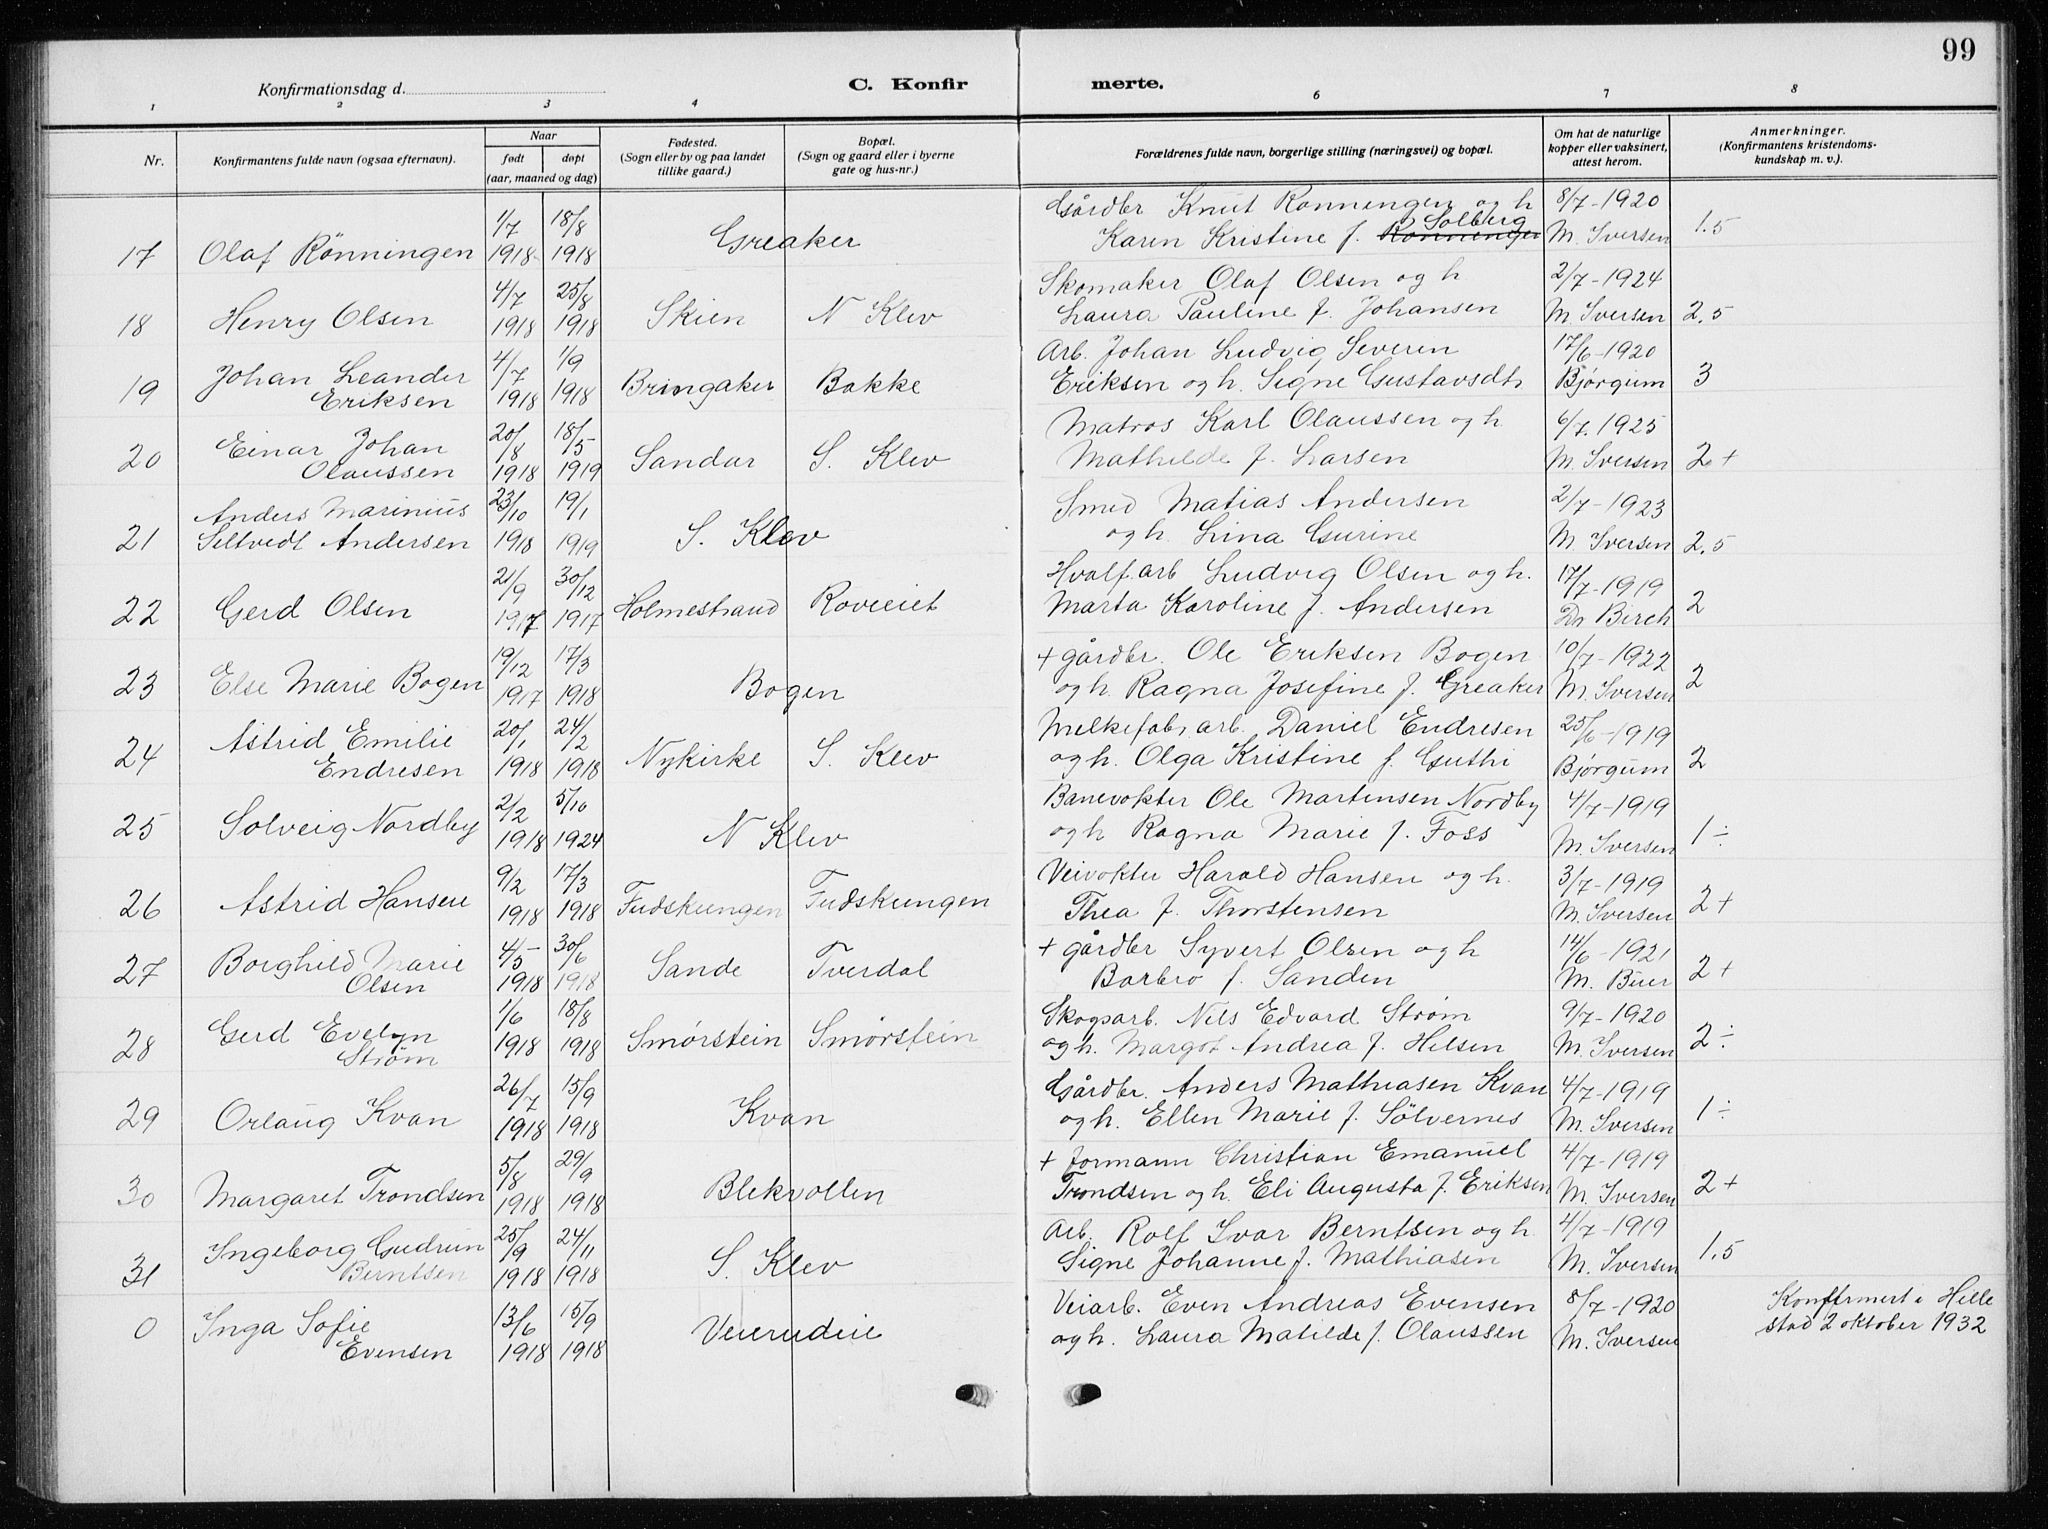 99
Konfirmationsdag d. C. Konfirmerte.
1 2 3 4 6 7 8
Nr. Konfirmantens fulde navn (ogsaa efternavn). Naar født døpt (aar, maaned og dag) Fødested. (Sogn eller by og paa landet tillike gaard.) Bopæl. (Sogn og gaard eller i byerne gate og hus-nr.) Forældrenes fulde navn, borgerlige stilling (næringsvei) og bopæl. Om hat de naturlige kopper eller vaksinert, attest herom. Anmerkninger. (Konfirmantens kristendomskundskap m. v.).
1/7 18/8 Gårdbr Knut Rønningen og h 8/7-1920
17 Olaf Rönningen 1918 1918 Greaker Karen Kristine f. Rønningen Solberg M. Iversen 1.5
4/7 25/8 Skomaker Olaf Olsen og h 2/7-1924
18 Henry Olsen 1918 1918 Skien N Klev Laura Pauline f. Johansen M. Iversen 2,5
Johan Leander 4/7 1/9 Arb. Johan Ludvig Severin 17/6-1920
19 Eriksen 1918 1918 Bringaker Bakke Eriksen og h. Signe Gustavsdtr Bjørgum 3
Einar Johan 20/8 18/5 Matros Karl Olaussen og h 6/7.1925
20 Olaussen 1918 1919 Sandar S. Klev Mathilde f. Larsen M. Iversen 2+
Anders Marinius 23/10 19/1 Smed Matias Andersen 2/7-1923
21 Seltvedt Andersen 1918 1919 S. Klev og h. Lina Gurine M. Iversen 2,5
21/9 30/12 Hvalf.arb Ludvig Olsen og h. 17/7-1919
22 Gerd Olsen 1917 1917 Holmestrand Roveeiet Marta Karoline f. Andersen Dr Birch 2
19/12 17/3 + gårdbr. Ole Eriksen Bogen 10/7-1922
23 Else Marie Bogen 1917 1918 Bogen og h. Ragna Josefine f. Greaker M. Iversen 2
Astrid Emilie 20/1 24/2 Melkefab.arb. Daniel Endresen 25/6-1919
24 Endresen 1918 1918 Nykirke S. Klev og h. Olga Kristine f. Guthi Bjørgum 2
2/2 5/10 Banevokter Ole Martinsen Nordby 4/7-1919
25 Solveig Nordby 1918 1924 N Klev og h Ragna Marie f. Foss M. Iversen 1÷
9/2 17/3 Veivokter Harald Hansen og h. 3/7-1919
26 Astrid Hansen 1918 1918 Fudskungen Fudskungen Thea f. Thorstensen M. Iversen 2+
Borghild Marie 4/5 30/6 + gårdbr Syvert Olsen og h 14/6-1921
27 Olsen 1918 1918 Sande Tverdal Barbro f. Sanden M. Buer 2+
Gerd Evelyn 1/6 18/8 Skogsarb. Nils Edvard Strøm 9/7-1920
28 Strøm 1918 1918 Smørstein Smørstein og h. Margot Andrea f. Helsen M. Iversen 2÷
26/7 15/9 Gårdbr. Anders Mathiasen Kvan 4/7-1919
29 Orlaug Kvan 1918 1918 Kvan og h. Ellen Marie f. Sölvernes M. Iversen 1÷
5/8 29/9 + formann Christian Emanuel 4/7-1919
30 Margaret Trondsen 1918 1918 Blekvollen Trondsen og h. Eli Augusta f. Eriksen M. Iversen 2+
Ingeborg Gudrun 25/9 24/11 Arb. Rolf Ivar Berntsen og h. 4/7-1919
31 Berntsen 1918 1918 S. Klev Signe Johanne f. Mathiasen M. Iversen 1,5
Inga Sofie 13/6 15/9 Veiarb. Even Andreas Evensen 8/7-1920 Konfirmert i Helle
0 Evensen 1918 1918 og h. Laura Matilde f. Olaussen M. Iversen stad 2 oktober 1932